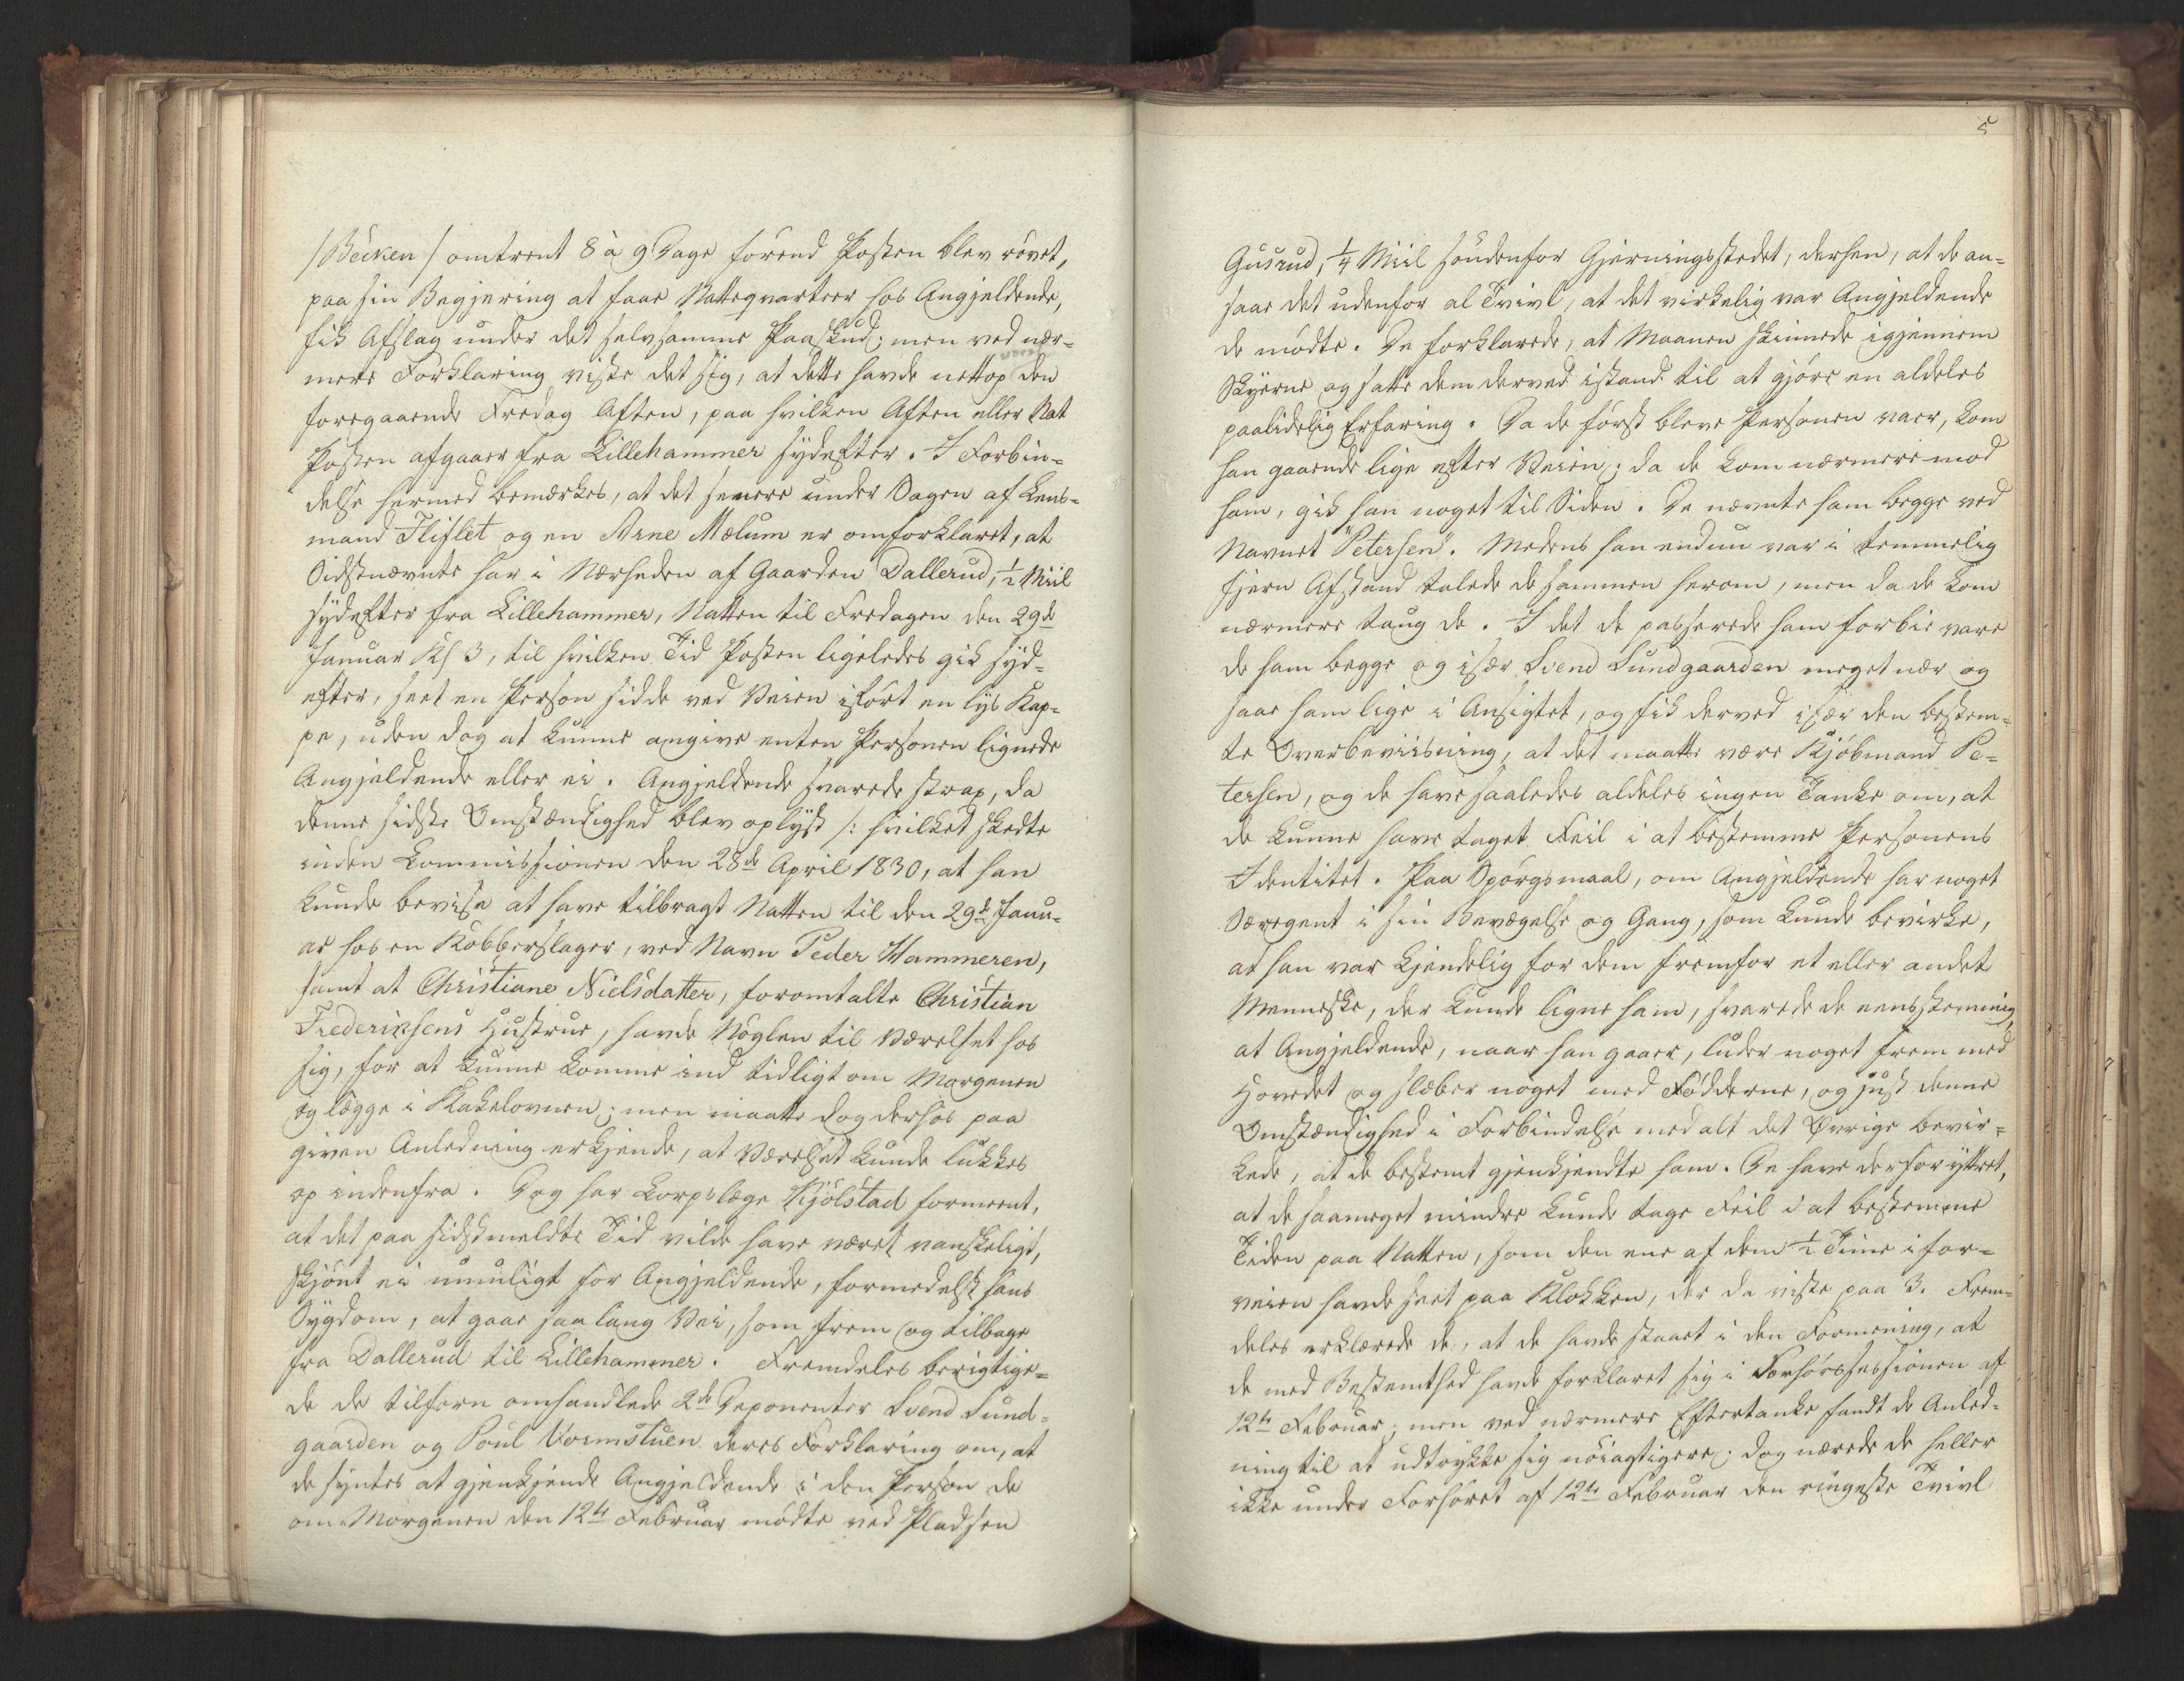 /Bècken/ omtrent 8 à 9 Dage förend Posten blev rövet,
paa sin Begjering at faae Natteqvarteer hos Angjeldende,
fik Afslag under det selvsamme Paaskud; men ved nær-
mere Forklaring viste det sig, at dette havde nettop den
foregaaende Fredag Aften, paa hvilken Aften eller Nat
Posten afgaaer fra Lillehammer sydefter. I Forbin-
delse hermed bemærkes, at det senere under Sagen af Lens-
mand Fliflet og en Arne Mælum er omforklaret, at
Sidstnævnte har i Nærheden af Gaarden Dallerud, ½ Miil
sydefter fra Lillehammer, Natten til Fredagen den 29de
Januar Kl 3, til hvilken Tid Posten ligeledes gik syd-
efter, seet en Person sidde ved Veien iført en lys Kap-
pe, uden dog at kunne angive enten Personen lignede
Angjeldende eller ei. Angjeldende svarede strax, da
denne sidste Omstændighed blev oplyst /: hvilket skedte
inden Commissionen den 28de April 1830, at han
kunde bevise at have tilbragt Natten til den 29de Janu-
ar hos en Kobberslager, ved Navn Peder Hammeren,
samt at Christiane Nielsdatter, foromtalte Christian
Frederiksens Hustrue, havde Nöglen til Værelset hos
sig, for at kunne komme ind tidligt om Morgenen
og lægge i Kakelovnen; men maatte dog derhos paa
given Anledning erkjende, at Værelset kunde lukkes
op indenfra. Dog har Corpslæge Kjölstad formeent,
at det paa sidstmeldte Tid vilde have været vanskeligt,
skjönt ei umuligt for Angjeldende, formedelst hans
Sygdom, at gaae saa lang Vei, som frem og tilbage
fra Dallerud til Lillehammer. Fremdeles berigtige-
de de tilforn omhandlede 2de Deponenter Svend Sund-
gaarden og Poul Vormstuen deres Forklaring om, at
de syntes at gjenkjende Angjeldende i den Person de
om Morgenen den 12te Februar mödte ved Pladsen
5
Gusrud, ¼ Miil söndenfor Gjerningsstedet, derhen, at de an-
saae det udenfor al Tvivl, at det virkelig var Angjeldende
de mödte. De forklarede, at Maanen skinnede igjennem
Skyerne og satte dem derved istand til at gjöre en aldeles
paalidelig Erfaring. Da de först bleve Personen vaer, kom
han gaaende lige efter Veien; da de kom nærmere mod
ham, gik han noget til Siden. De nævnte ham begge ved
Navnet "Petersen". Medens han endnu var i temmelig
fjern Afstand talede de sammen herom, men da de kom
nærmere taug de. I det de passerede ham forbie vare
de ham begge og især Svend Sundgaarden meget nær og
saae ham lige i Ansigtet, og fik derved især den bestem-
te Overbeviisning, at det maatte være Kjöbmand Pe-
tersen, og de have saaledes aldeles ingen Tanke om, at
de kunne have taget Feil i at bestemme Personens
Identitet. Paa Spörgsmaal, om Angjeldende har noget
Særegent i sin Bevægelse og Gang, som kunde bevirke,
at han var kjendelig for dem fremfor et eller andet
Menneske, der kunde ligne ham, svarede de eensstemmig,
at Angjeldende, naar han gaaer, luder noget frem med
Hovedet og slæber noget med Födderne, og just denne
Omstændighed i Forbindelse med alt det Øvrige bevir-
kede, at de bestemt gjenkjendte ham. De have derfor yttret,
at de saameget mindre kunde tage Feil i at bestemme
Tiden paa Natten, som den ene af dem ½ Time i for-
veien havde seet paa Klokken, der da viste paa 3. Frem-
deles erklærede de, at de havde staaet i den Formening, at
de med Bestemthed havde forklaret sig i Forhörssessionen af
12te Februar; men ved nærmere Eftertanke fandt de Anled-
ning til at udtrykke sig nöiagtigere; dog nærede de heller
ikke under Forhöret af 12te Februar den ringeste Tvivl